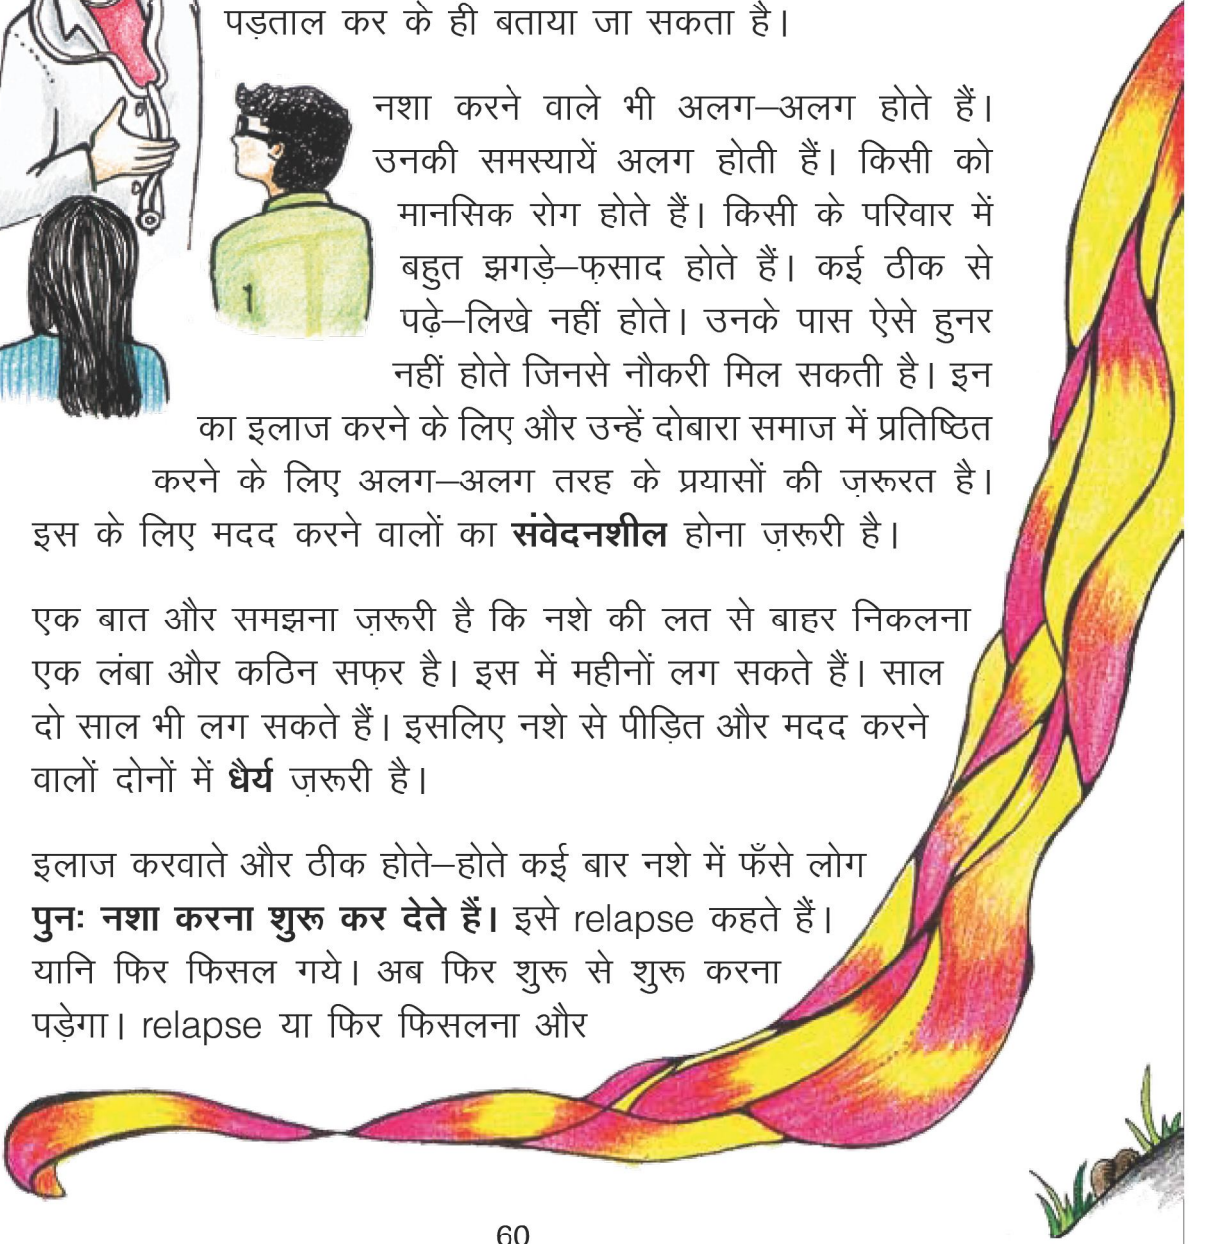 पड़ताल कर के ही बताया जा सकता है।
नशा करने वाले भी अलग–अलग होते हैं।
उनकी समस्यायें अलग होती हैं। किसी को
मानसिक रोग होते हैं। किसी के परिवार में
बहुत झगड़े–फ़साद होते हैं। कई ठीक से
पढ़े–लिखे नहीं होते। उनके पास ऐसे हुनर
नहीं होते जिनसे नौकरी मिल सकती है। इन
का इलाज करने के लिए और उन्हें दोबारा समाज में प्रतिष्ठित
करने के लिए अलग–अलग तरह के प्रयासों की ज़रूरत है।
इस के लिए मदद करने वालों का संवेदनशील होना ज़रूरी है।
एक बात और समझना ज़रूरी है कि नशे की लत से बाहर निकलना
एक लंबा और कठिन सफ़र है। इस में महीनों लग सकते हैं। साल
दो साल भी लग सकते हैं। इसलिए नशे से पीड़ित और मदद करने
वालों दोनों में धैर्य ज़रूरी है।
इलाज करवाते और ठीक होते–होते कई बार नशे में फँसे लोग
पुनः नशा करना शुरू कर देते हैं। इसे relapse कहते हैं।
यानि फिर फिसल गये। अब फिर शुरू से शुरू करना
पड़ेगा। relapse या फिर फिसलना और
60